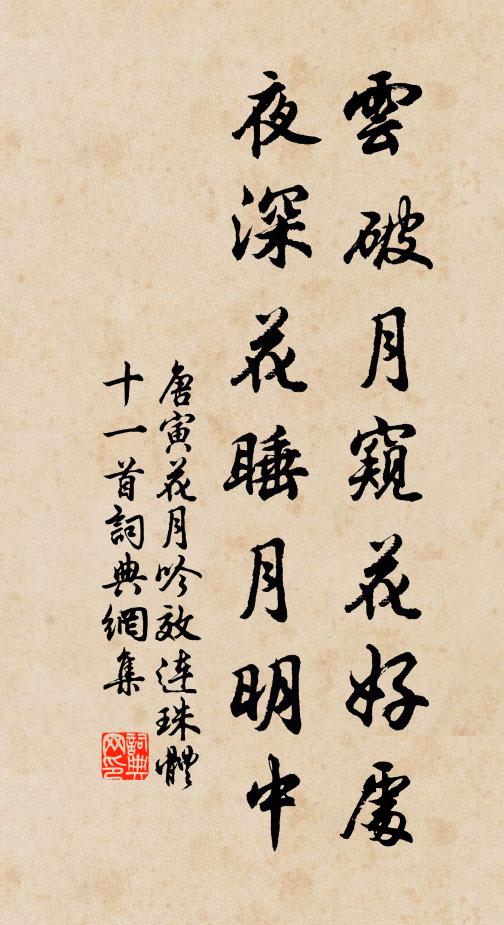 雲破月窺花好處
夜深花睡月明中
唐寅花月吟效连珠體
十一首詞典網集
詞典網印